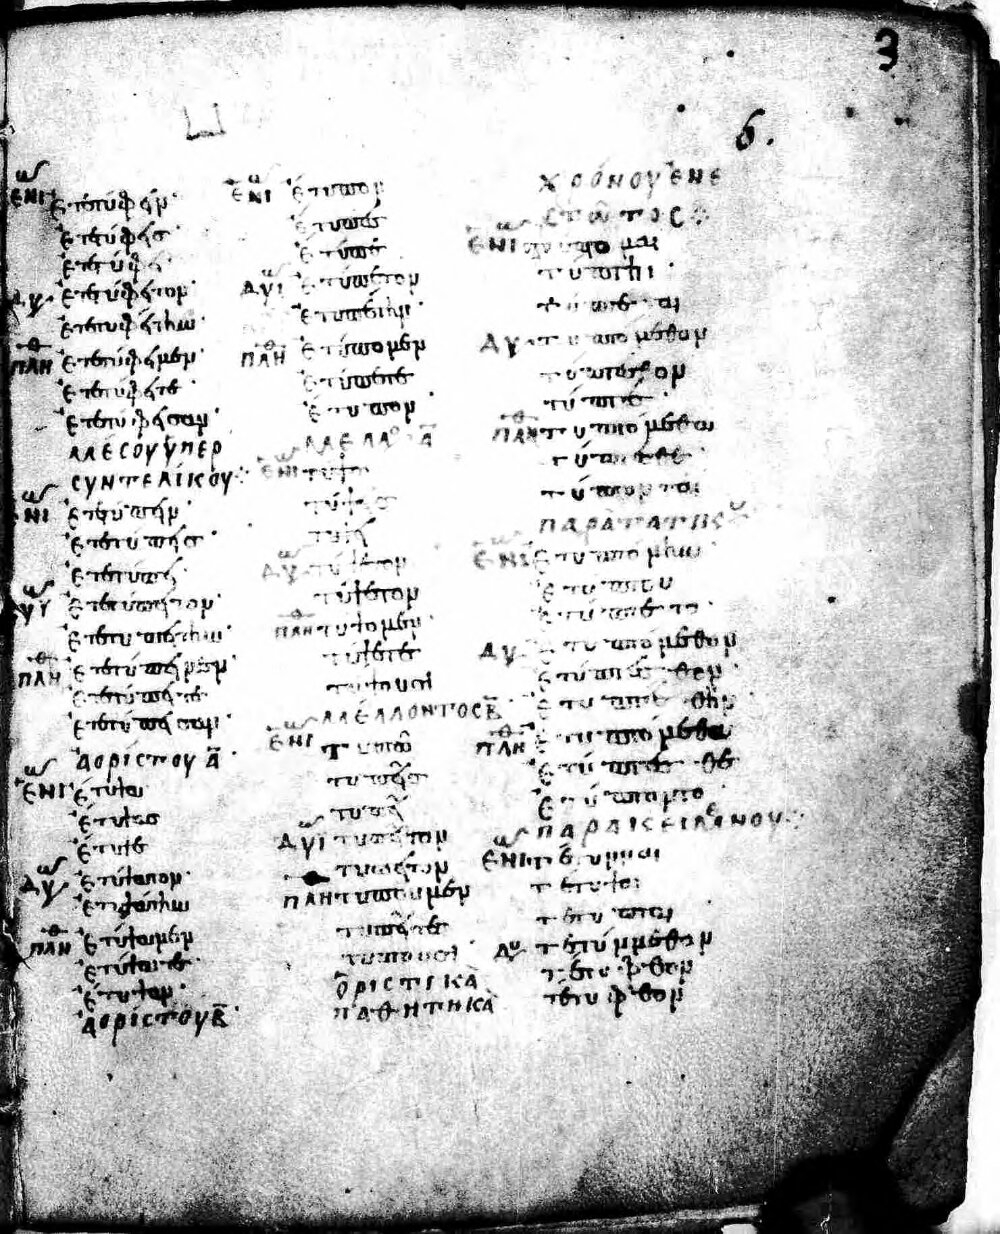 3
б.
ΕΝΙ ἐτετύφειν
ἐτετύφεις
ἐτετύφει
ΔΥ ἐτετύφειτον
ἐτετυφείτην
ΠΛΗ ἐτετύφειμεν
ἐτετύφειτε
ἐτετύφεισαν
ΜΕΣΟΥ ὙΠΕΡ
ΣΥΝΤΕΛΙΚΟΥ
ΕΝΙ ἐτετύπειν
ἐτετύπεις
ἐτετύπει
ΔΥΙ ἐτετύπειτον
ἐτετυπείτην
ΠΛΗ ἐτετύπειμεν
ἐτετύπειτε
ἐτετύπεισαν
ἈΟΡΙΣΤΟΥ Α
ΕΝΙ ἔτυψα
ἔτυψας
ἔτυψε
ΔΥ ἐτύψατον
ἐτυψάτην
ΠΛΗ ἐτύψαμεν
ἐτύψατε
ἔτυψαν
ἈΟΡΙΣΤΟΥ Β
ΕΝΙ ἔτυπον
ἔτυπες
ἔτυπε
ΔΥΙ ἐτύπετον
ἐτυπέτην
ΠΛΗ ἐτύπομεν
ἐτύπετε
ἔτυπον
ΜΕΛΛΟ Α
ΕΝΙ τύψω
τύψεις
τύψει
ΔΥ τύψετον
τύψετον
ΠΛΗ τύψομεν
τύψετε
τύψουσι
ΜΕΛΛΟΝΤΟΣ Β
ΕΝΙ τυπῶ
τυπεῖς
τυπεῖ
ΔΥΙ τυπεῖτον
τυπεῖτον
ΠΛΗ τυποῦμεν
τυπεῖτε
τυποῦσι
ὉΡΙΣΤΙΚΑ
ΠΑΘΗΤΙΚΑ
ΧΡΟΝΟΥ ἘΝΕ
ΣΤΩΤΟΣ
ΕΝΙ τύπτομαι
τύπτῃ
τύπτεται
ΔΥ τυπτόμεθον
τύπτεσθον
τύπτεσθον
ΠΛΗ τυπτόμεθα
τύπτεσθε
τύπτονται
ΠΑΡΑΤΑΤΙΚΟΥ
ΕΝΙ ἐτυπτόμην
ἐτύπτου
ἐτύπτετο
ΔΥ ἐτυπτόμεθον
ἐτύπτεσθον
ἐτυπτέσθην
ΠΛΗ ἐτυπτόμεθα
ἐτύπτεσθε
ἐτύπτοντο
ΠΑΡΑΚΕΙΜΕΝΟΥ
ΕΝΙ τέτυμμαι
τέτυψαι
τέτυπται
ΔΥ τετύμμεθον
τέτυφθον
τέτυφθον